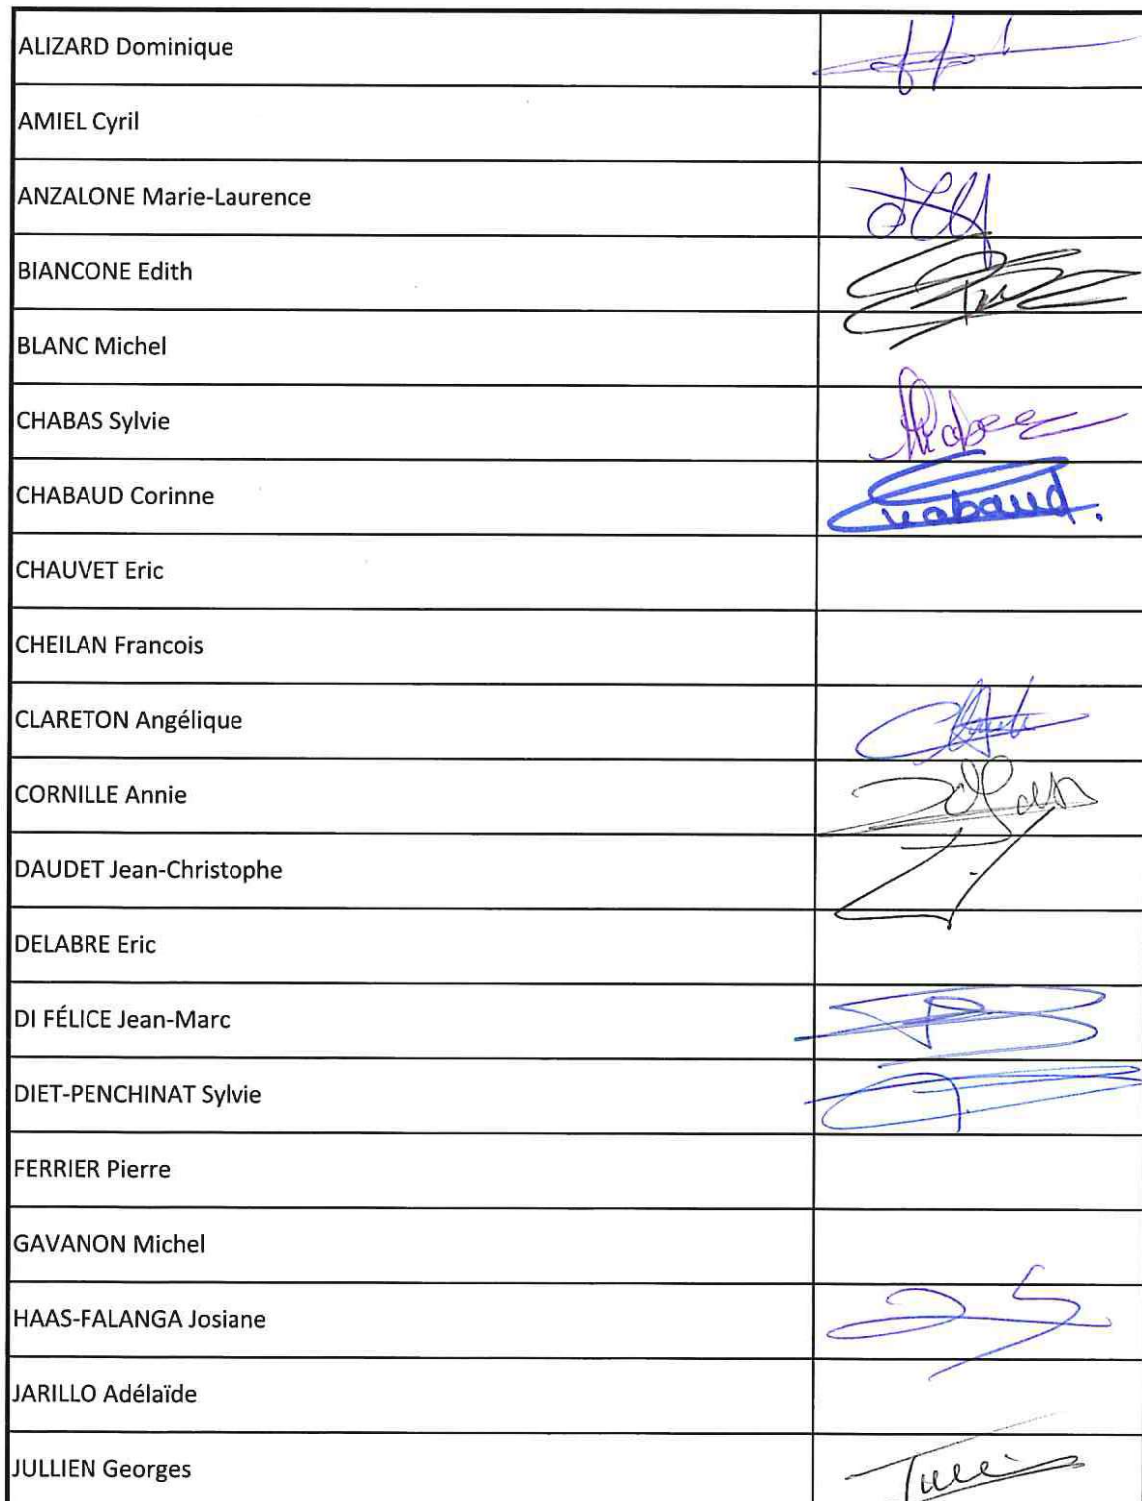 ALIZARD Dominique
AMIEL Cyril
ANZALONE Marie-Laurence
BIANCONE Edith
BLANC Michel
CHABAS Sylvie
CHABAUD Corinne
Chabaud.
CHAUVET Eric
CHEILAN Francois
CLARETON Angélique
CORNILLE Annie
DAUDET Jean-Christophe
DELABRE Eric
DI FÉLICE Jean-Marc
DIET-PENCHINAT Sylvie
FERRIER Pierre
GAVANON Michel
HAAS-FALANGA Josiane
JARILLO Adélaïde
JULLIEN Georges